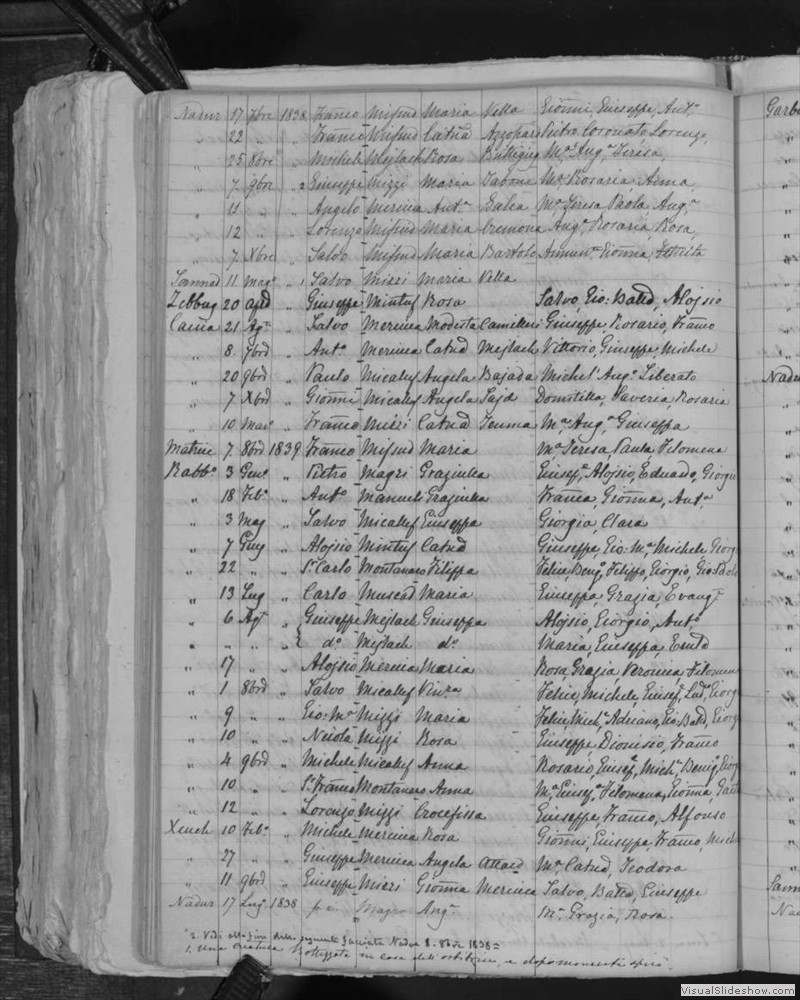 Nadur 17 7bre 1838 Franco Mifsud Maria Vella Gionni, Giuseppe, Ant.
" 22 " " Franco Mifsud Catnd Azzopardi Pietro Coronato, Lorenzo,
" 25 8bre " Michele Mejlach Rosa Buttigieg Ma Ang.a Teresa,
" 7 9bre " 2 Giuseppe Mizzi Maria Tabone Ma Rosaria, Anna,
" 11 " " Angelo Mercieca Ant.a Galea Ma Teresa Paola, Ang.a
" 12 " " Lorenzo Mifsud Maria Cremona Ang.a Rosaria, Rosa,
" 7 Xbre " Salvo Mifsud Maria Bartolo Gionna,
Sannad 11 Mago " 1 Salvo Mizzi Maria Vella
Zebbug 20 apd " Giuseppe Mintuf Rosa Salvo, Gio: Battd, Alojsio
21 Agt " Salvo Mercieca Modesta Camilleri Giuseppe, Rosario, Franco
" 8 7brd " Anto Mercieca Catnd Mejlach Vittorio, Giuseppe, Michele
" 20 9brd " Paulo Micalef Angela Bajada Michel' Ang.o Liberato
" 7 Xbrd " Gionni Micalef Angela Sajd Domitilla, Saveria, Rosaria
" 10 Mar.o " Franco Mizzi Catnd Ma Ang.a Giuseppa
Matrice 7 8brd 1839 Franco Mifsud Maria Ma Teresa, Paula, Filomena
Rabbo 3 Geno " Pietro Magri Graziulla Giusefa, Alojsio, Eduardo, Giorgi
" 18 Febo " Anto Manueli Graziulla Franca, Gionna, Ant.a
" 3 Mag " Salvo Micalef Giuseppa Giorgia, Clara
" 7 Giug " Alojsio Mintuf Catnd Giuseppe, Gio: Ma Michele Giorg
" 22 " " Sr Carlo Montanaro Filippa Felice, Beng. Felippo, Giorgio, Gio:
" 13 Lug " Carlo Muscat Maria Giuseppa, Grazia, Evang.a
" 6 Agt " Giuseppe Mejlach Giuseppa Alojsio, Giorgio, Anto
" " " " do Mejlach do Maria, Giuseppa,
" 17 " " Alojsio Mercieca Maria Rosa, Grazia Veronica, Filomen
" 1 8brd " Salvo Micalef Vinza Felice, Michele, Giusefe, Giorg
" 9 " " Gio: Ma Mizzi Maria Felice, Adriano, Gio: Battd, Giorg
" 10 " " Nicola Mizzi Rosa Giuseppe Dionisio, Franco
" 4 9brd " Michele Micalef Anna Rosario, Giusefe, Michl. Benig. Giorg
" 10 " " Sr Franco Montanaro Anna Ma Giusefa Filomena, Gionna,
" 12 " " Lorenzo Mizzi Crocefissa Giuseppe, Franco, Alfonso
Xeuch 10 Febo " Michele Mercieca Rosa Gionni, Giuseppe, Franco, Mich
" 27 " " Giuseppe Mercieca Angela Attard Ma Catnd, Teodora
" 11 9brd " Giuseppe Mizzi Gionna Mercieca Salvo, Battd, Giuseppe
Nadur 17 Lug. 1838 Magro Ang.a Ma Grazia, Rosa
2. Vedi alla fine della seguente facciata Nadur 8. 8bre 1838
1. Una creatura Battezzata in casa dell' ostetrice, e dopo momenti spirò
Garb
Nadu
Sann
Na
VisualSlideshow.com